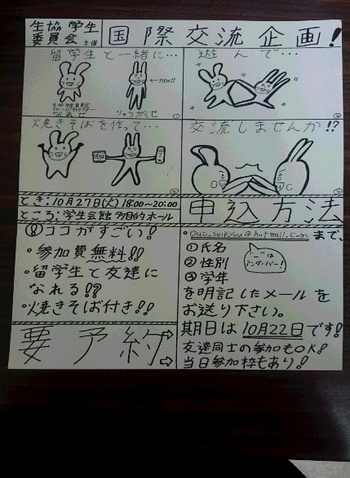 生協学生委員会主催
国際交流企画!
留学生と一緒に…
遊んで…
りゅうがくせい
焼きそばを作って…
交流しませんか!?
とき:10月27日(火)18:00~20:00
ところ:学生会館 多目的ホール
申込方法
ココがすごい!
・参加費無料!!
・留学生と友達に
なれる!!?
・焼きそば付き!!
要予約
まで、
①氏名
②性別
③学年
"_"は
アンダーバー!
を明記したメールを
お送り下さい。
期日は10月22日です!
友達同士の参加もOK!
当日参加枠もあり!